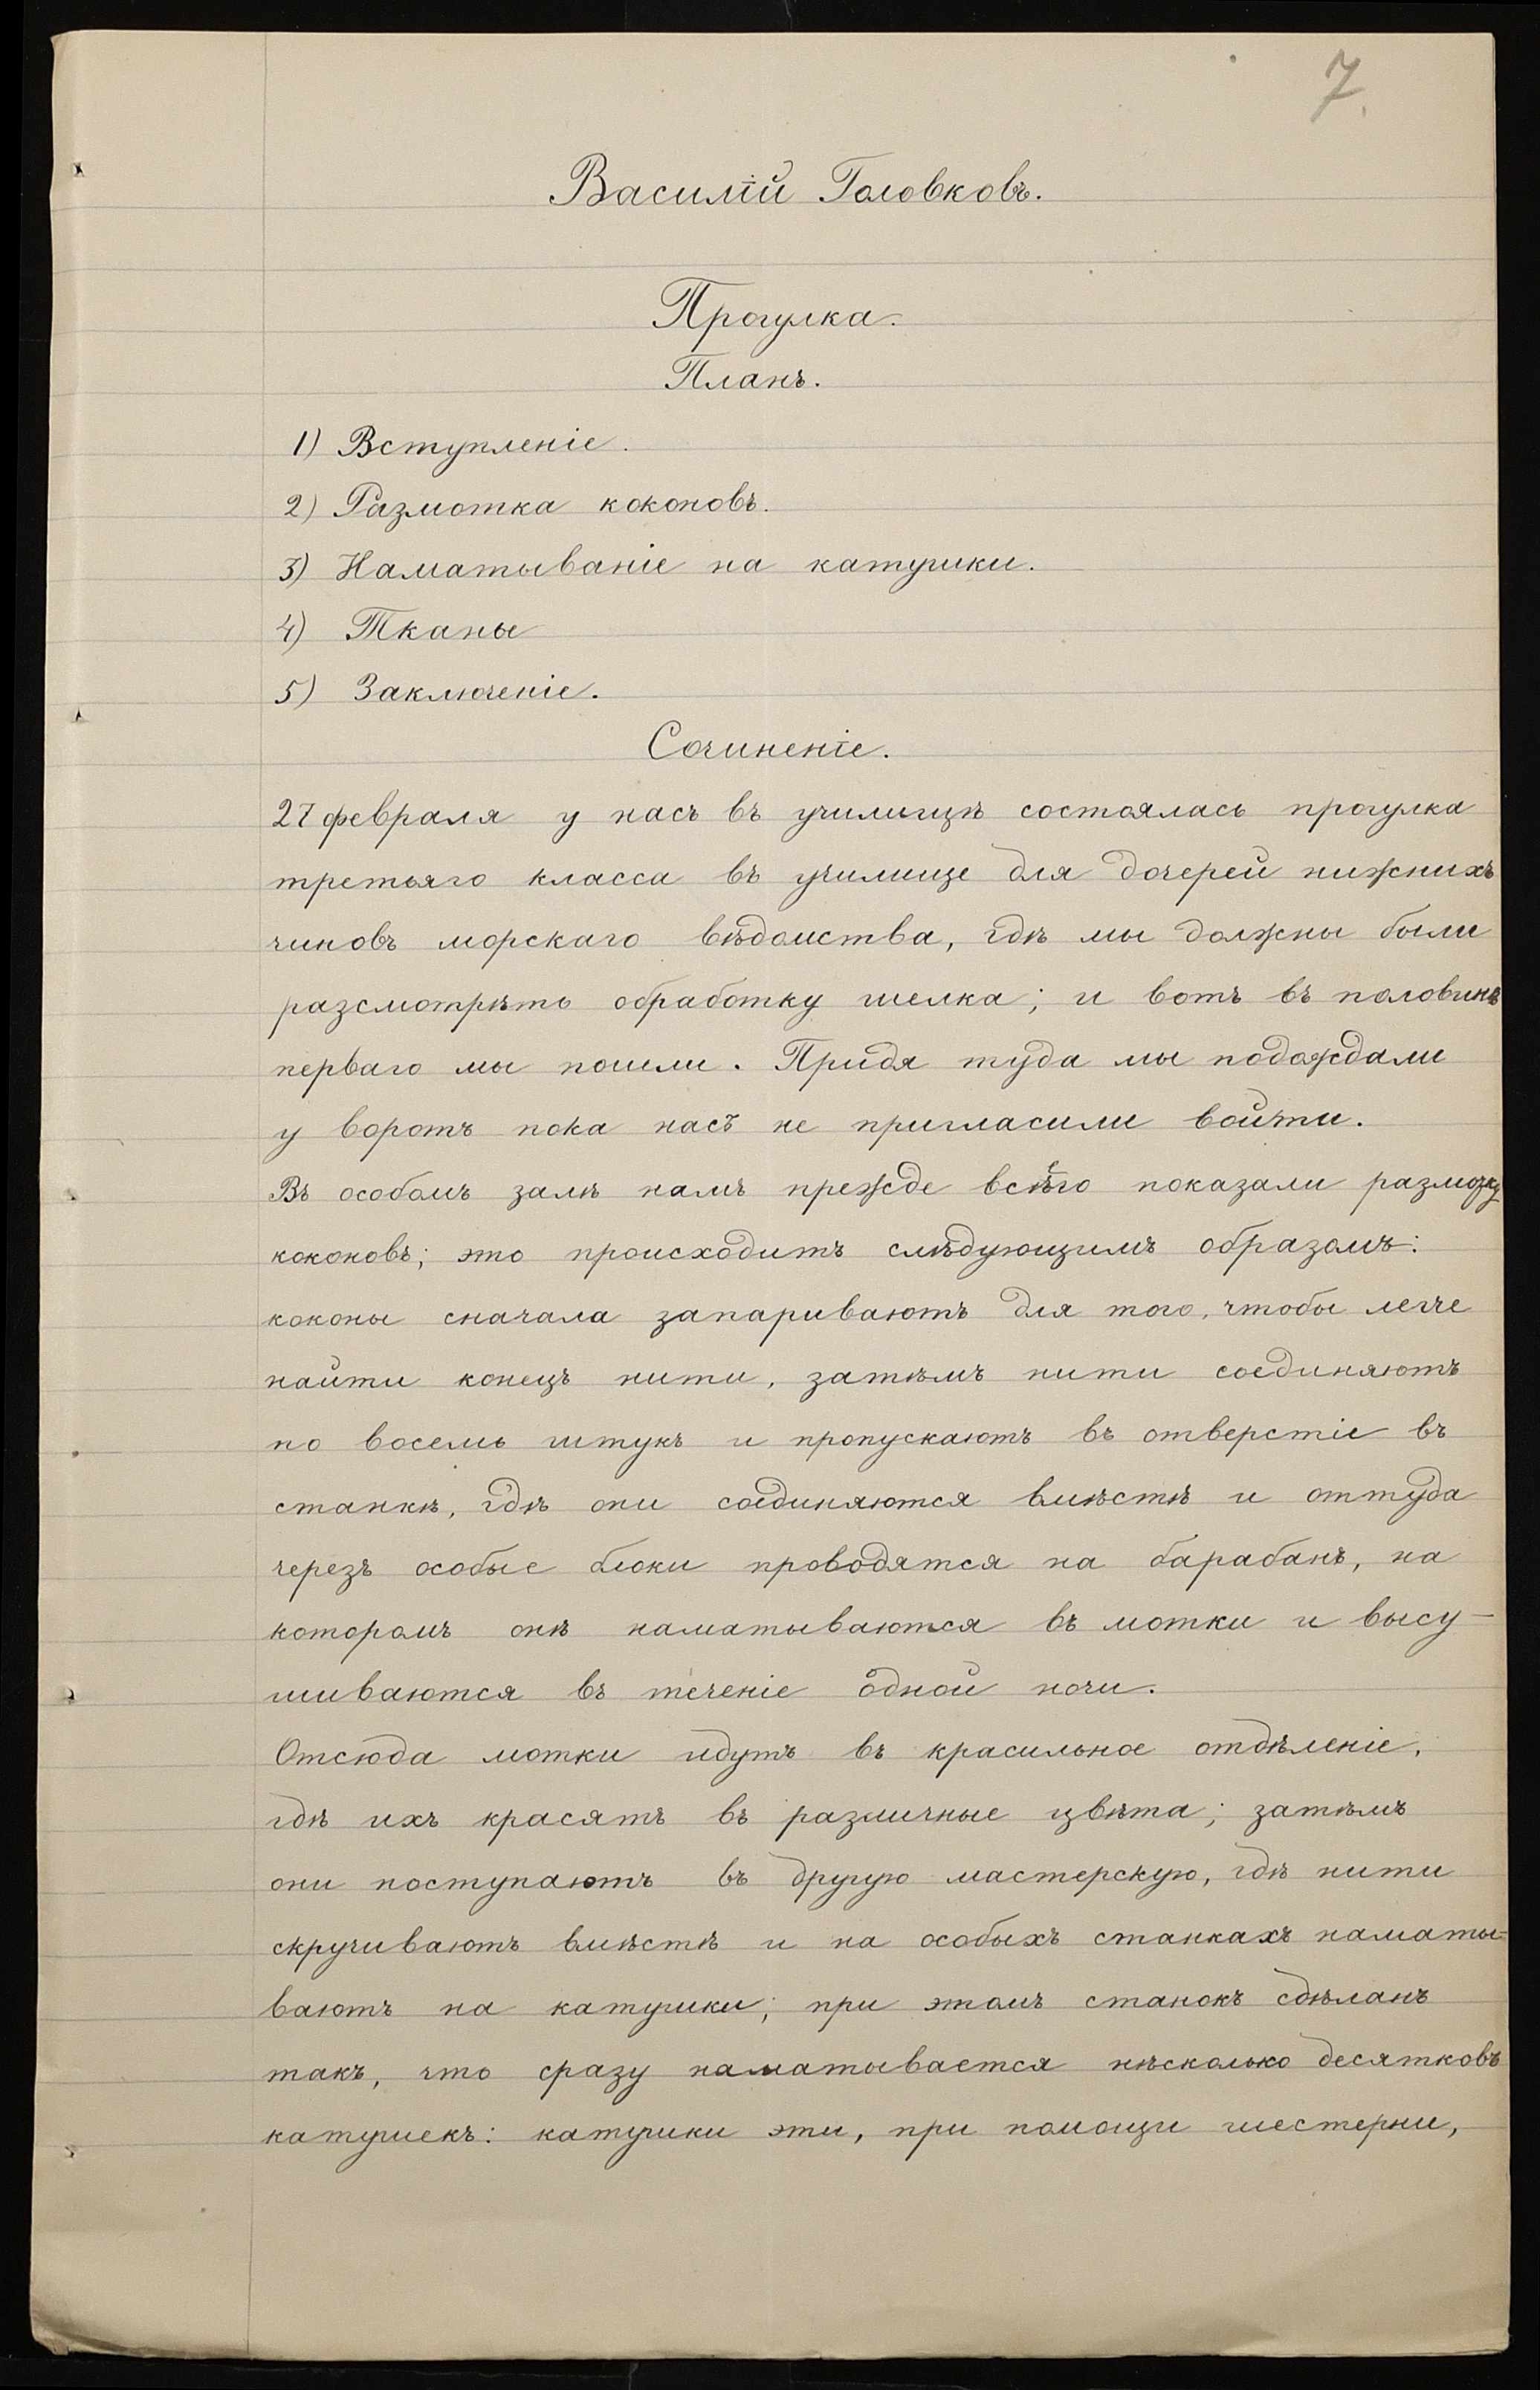 7.
Василій Головковъ.
Прогулка.
Планъ.
1) Вступленіе.
2) Размотка коконовъ.
3) Наматываніе на катушки.
4) Тканье
5) Заключеніе.
Сочиненіе.
27 февраля у насъ въ училищѣ состоялась прогулка
третьяго класса въ училище для дочерей нижнихъ
чиновъ морскаго вѣдомства, гдѣ мы должны были
разсмотрѣть обработку шелка; и вотъ въ половинѣ
перваго мы пошли. Придя туда мы подождали
у воротъ пока насъ не пригласили войти.
Въ особомъ залѣ намъ прежде всего показали размотку
коконовъ; это происходитъ слѣдующимъ образомъ:
коконы сначала запариваютъ для того, чтобы легче
найти конецъ нити, затѣмъ нити соединяютъ
по восемь штукъ и пропускаютъ въ отверстіе въ
станкѣ, гдѣ они соединяются вмѣстѣ и оттуда
черезъ особые блоки проводятся на барабанъ, на
которомъ онѣ наматываются въ мотки и высу-
шиваются въ теченіе одной ночи.
Отсюда мотки идутъ въ красильное отдѣленіе,
гдѣ ихъ красятъ въ различные цвѣта; затѣмъ
они поступаютъ въ другую мастерскую, гдѣ нити
скручиваютъ вмѣстѣ и на особыхъ станкахъ наматы-
ваютъ на катушки; при этомъ станокъ сдѣланъ
такъ, что сразу наматывается нѣсколько десятковъ
катушекъ: катушки эти, при помощи шестерни,